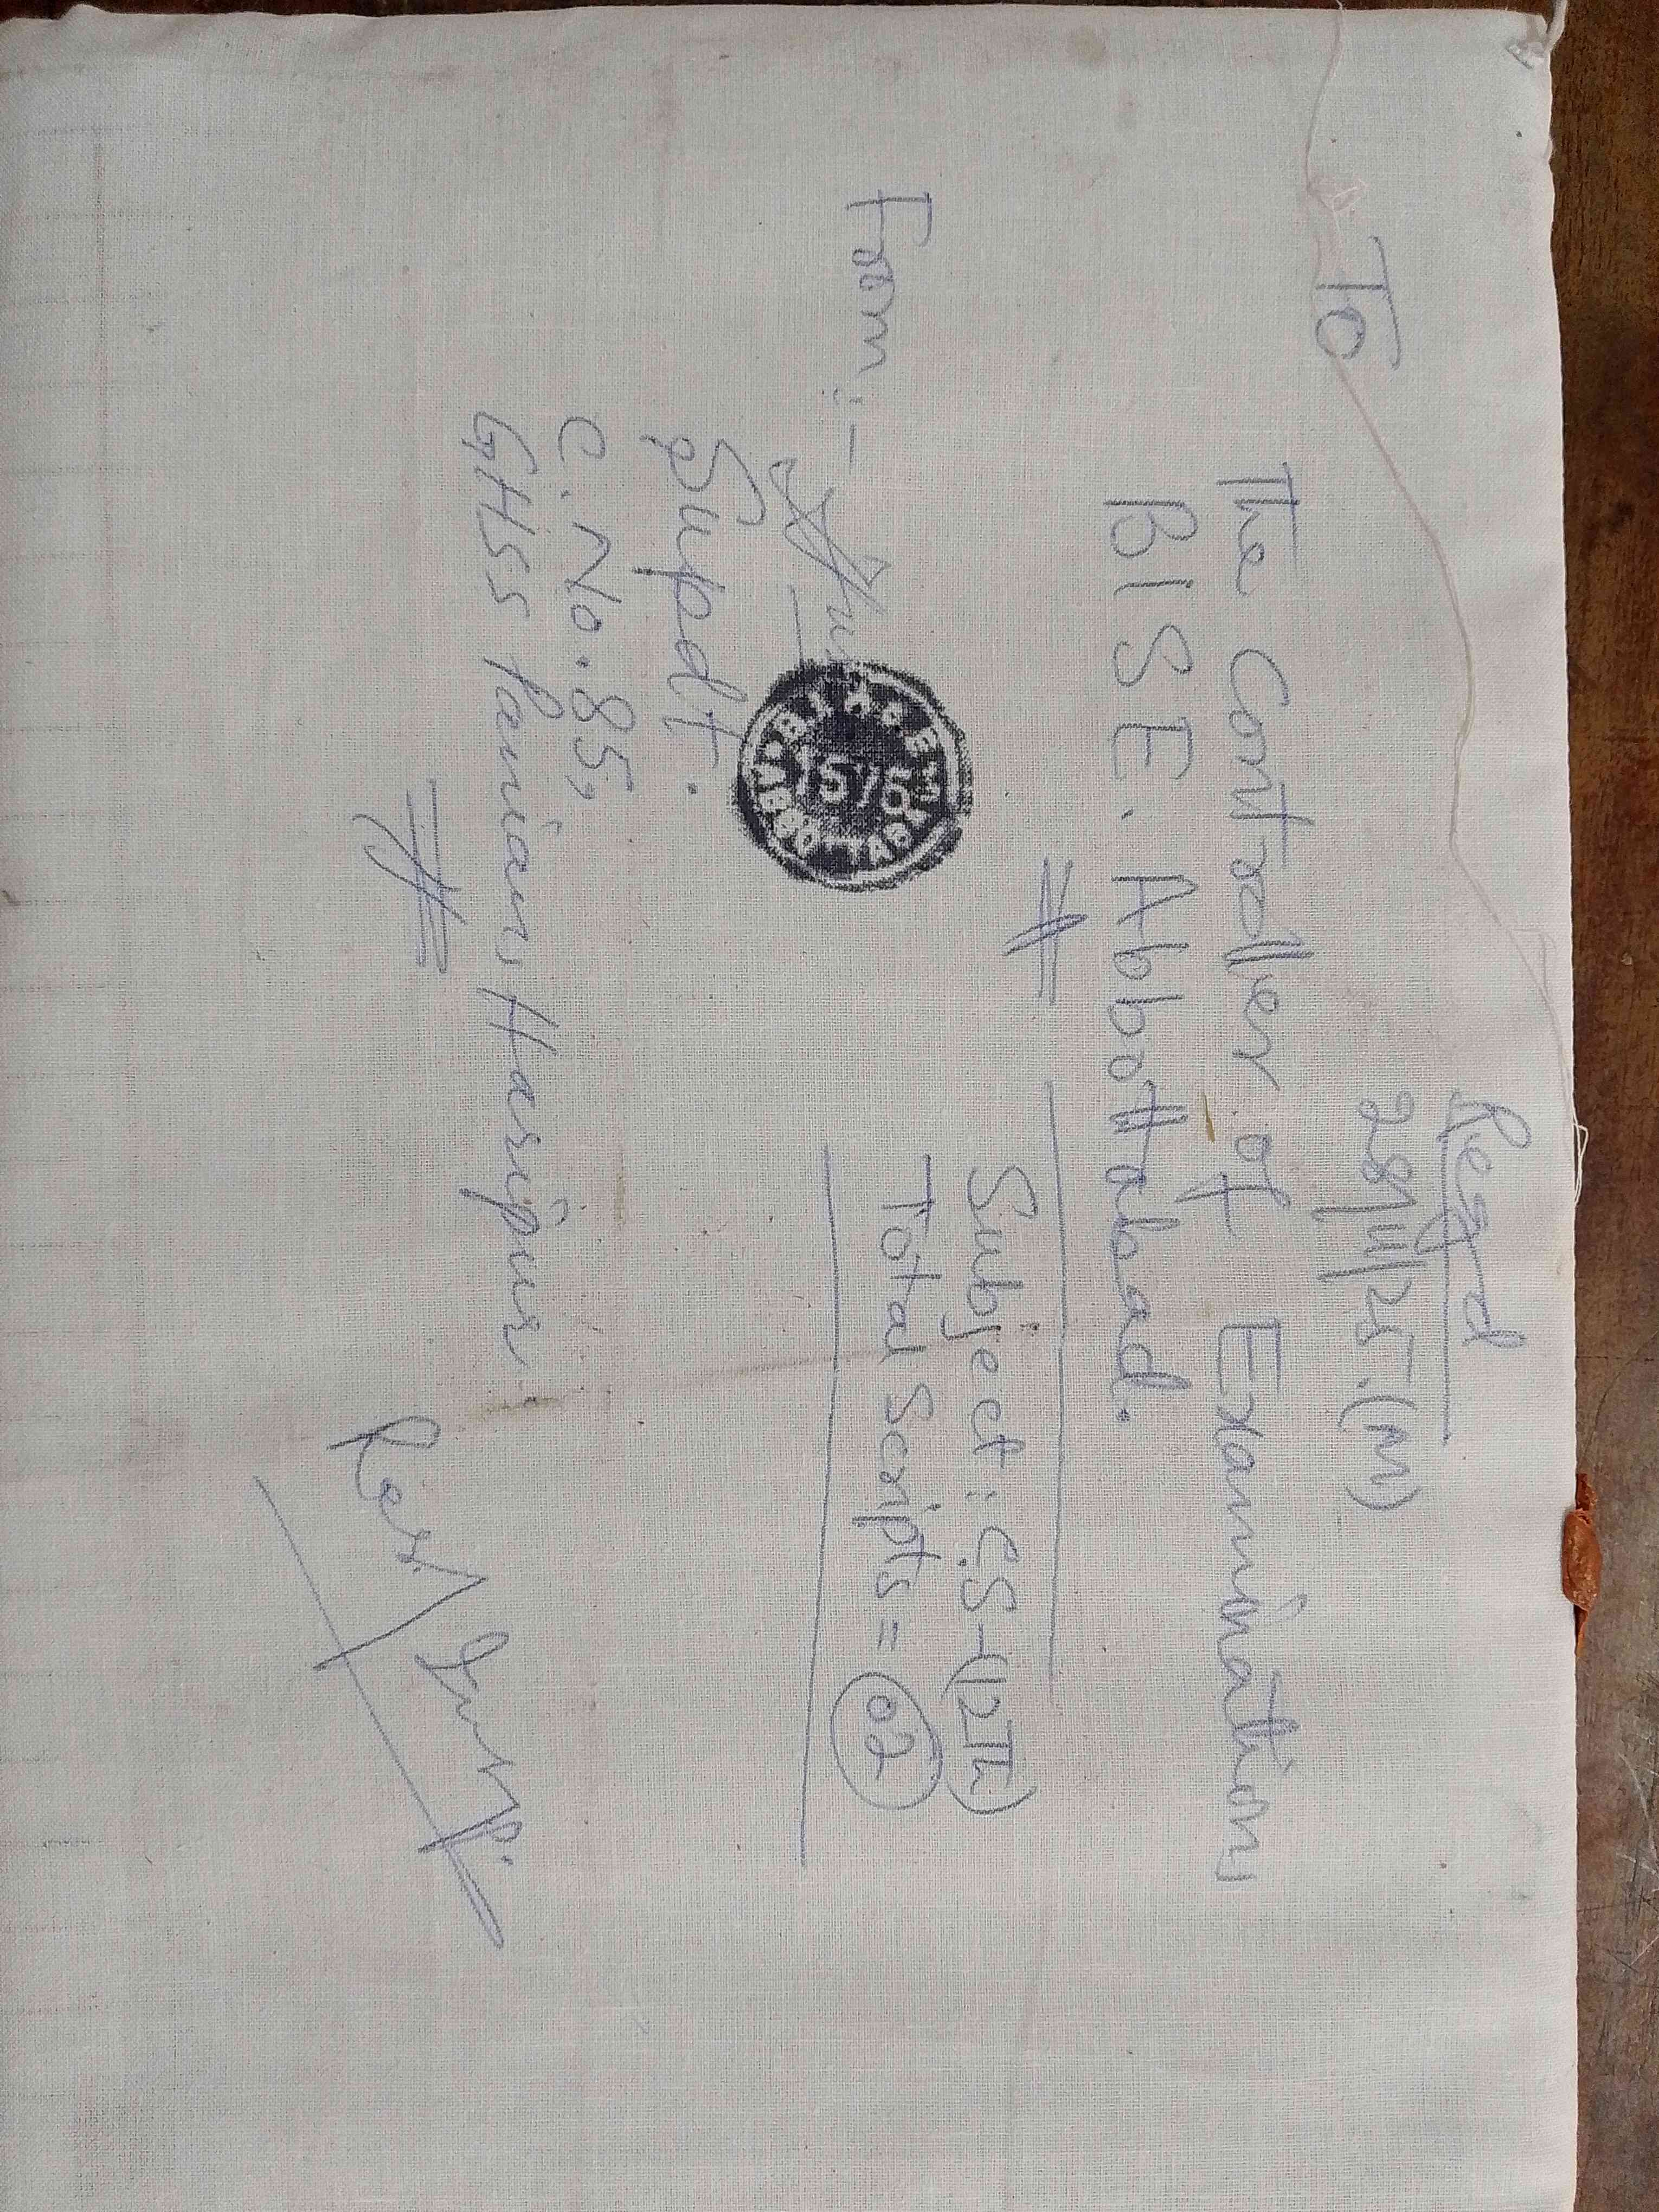 Regd
28/4/25.(M)
To
The Controller of Examination,
BISE. Abbottabad.
Subject: C.S-(12th)
Total Scripts = 02
From :-
Supdt.
C. No. 85,
GHSS Panian, Haripur